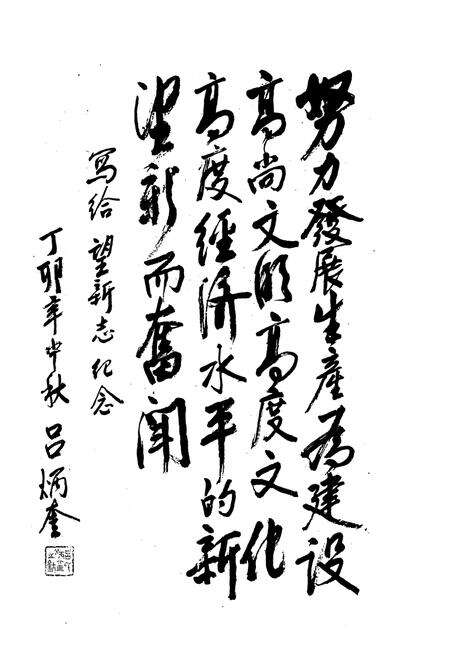 努力發展生產为建设
高尚文明高度文化
高度經济水平的新
望新而奮鬥
寫给望新志纪念
丁卯年中秋 吕炳奎